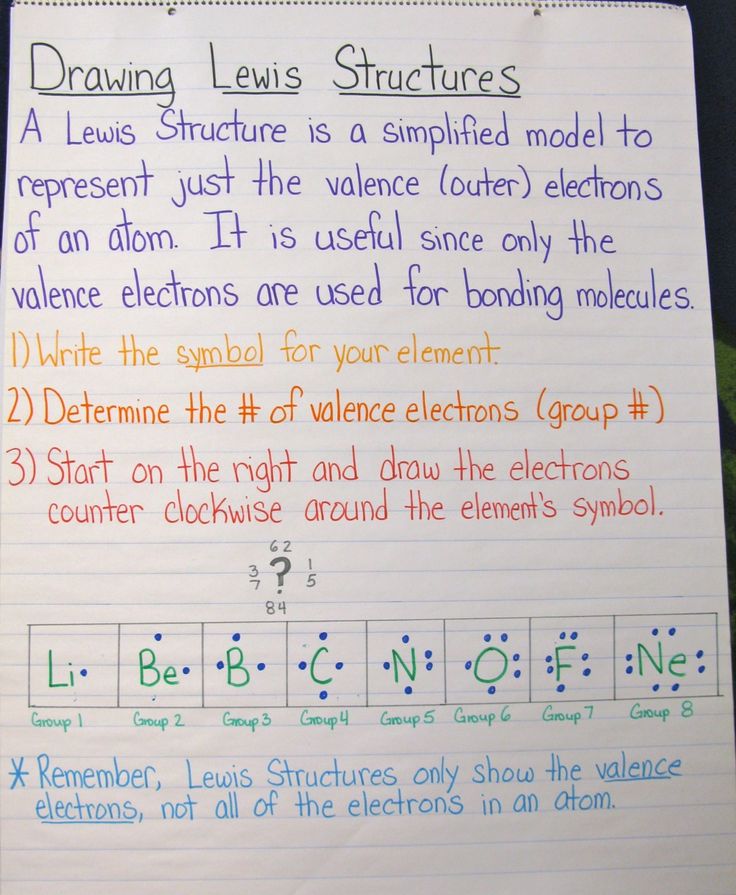 Drawing Lewis Structures
A Lewis Structure is a simplified model to
represent just the valence (outer) electrons
of an atom. It is useful since only the
valence electrons are used for bonding molecules.
1) Write the symbol for your element.
2) Determine the # of valence electrons (group #)
3) Start on the right and draw the electrons
counter clockwise around the element's symbol.
6 2
3 ? 1
7 5
8 4
Li Be B C N O F Ne
Group 1 Group 2 Group 3 Group 4 Group 5 Group 6 Group 7 Group 8
* Remember, Lewis Structures only show the valence
electrons, not all of the electrons in an atom.